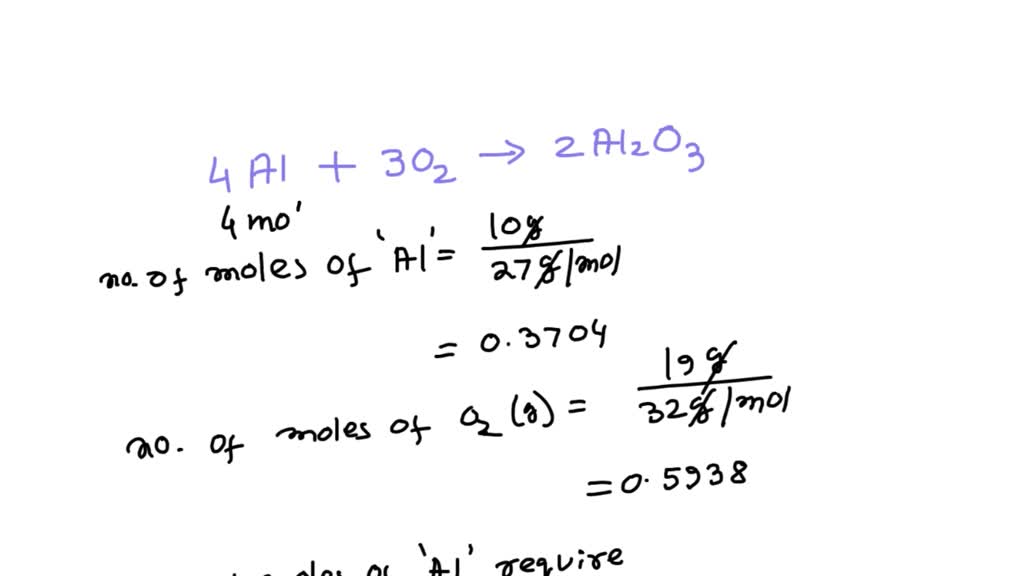 4 Al + 3O2 → 2Al2O3
4 mo'
no. of moles of 'Al' = 10g / 27g/mol
= 0.3704
no. of moles of O2 (g) = 19g / 32g/mol
= 0.5938
of 'Al' require